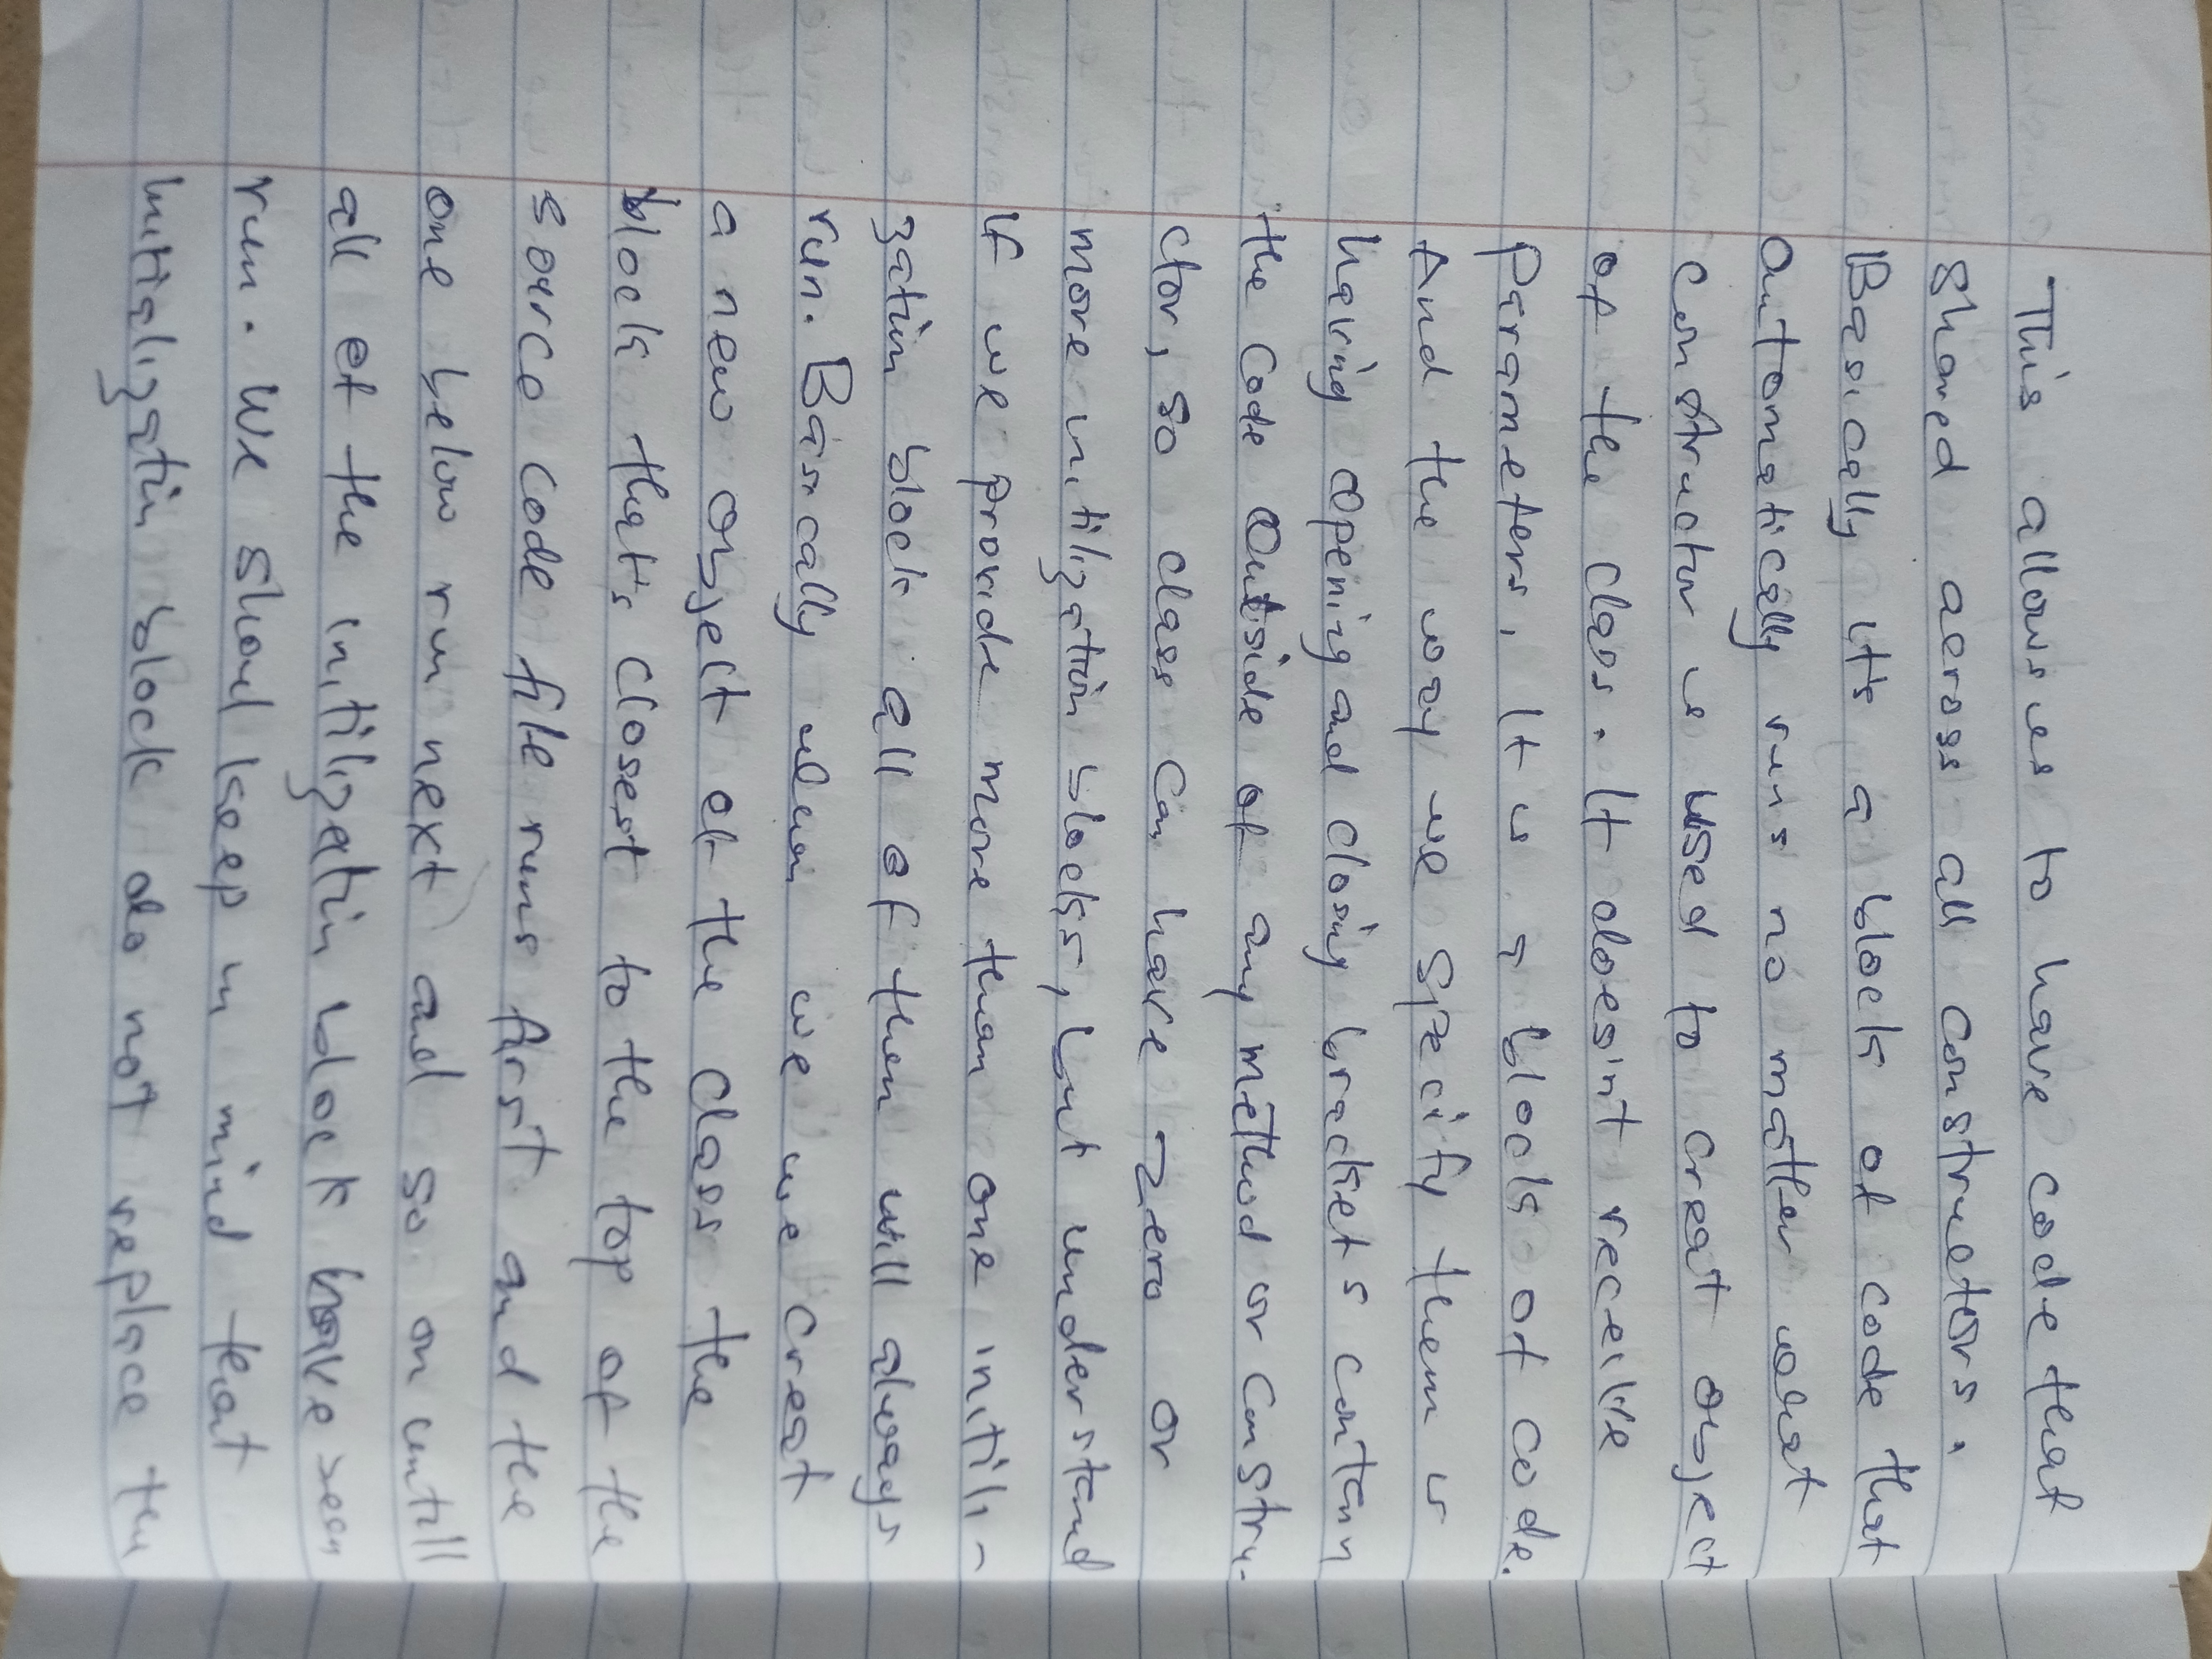 This allows us to have code that
shared across all constructors.
Basically it's a block of code that
automatically runs no matter what
constructor is used to creat object
of the class. It doesint receive
parameters, It is a block of code.
And the way we specify them is
having opening and closing brackets contain
the code outside of any method or constru-
ctor, so class can have zero or
more initilization blocks, but understand
if we provide more than one initili-
zation block all of them will always
run. Basically when we we creat
a new object of the class the
block that's closest to the top of the
source code file runs first and the
one below run next and so on untill
all of the initilization block have seen
run. We shoul keep in mind that
initialization block do not replace the